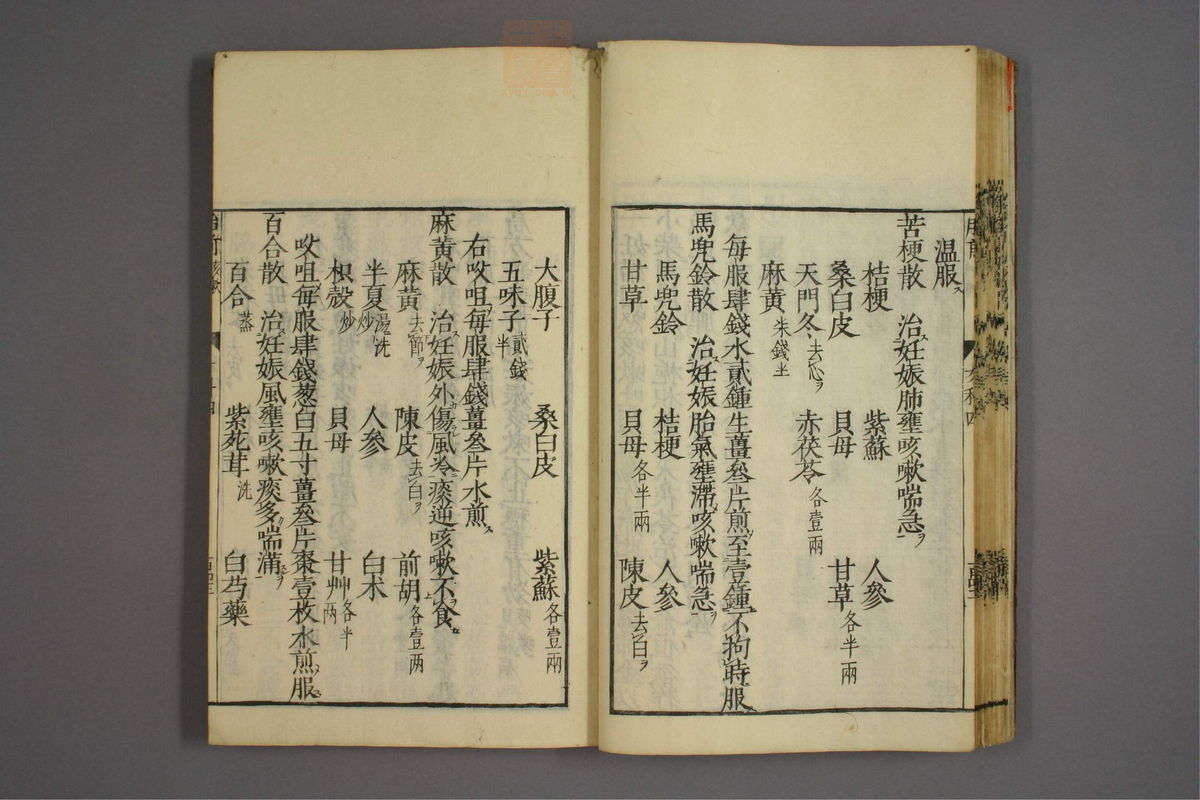 温服ス
苦梗散　治妊娠肺壅咳嗽喘急ヲ
桔梗　紫蘇　人參
桑白皮　貝母　甘草各半兩
天門冬去心ヲ　赤茯苓各壹兩
麻黄
每服肆錢水貳鍾生薑叄片煎至壹鍾不拘時服
馬兜鈴散　治妊娠胎氣壅滯咳嗽喘急ヲ
馬兜鈴　桔梗　人參
甘草　貝母各半兩　陳皮去白ヲ
大腹子　桑白皮　紫蘇各壹兩
五味子貳錢半
右㕮咀每服肆錢薑叄片水煎ス
麻黄散　治妊娠外傷風冷痰逆咳嗽不食
麻黄去節ヲ　陳皮去白ヲ　前胡各壹两
半夏湯洗炒　人參　白术
枳殼炒　貝母　甘艸各半兩
㕮咀每服肆錢葱白五寸薑叄片棗壹枚水煎服ス
百合散　治妊娠風壅咳嗽痰多喘滿ヲ
百合蒸　紫菀茸洗　白芍藥